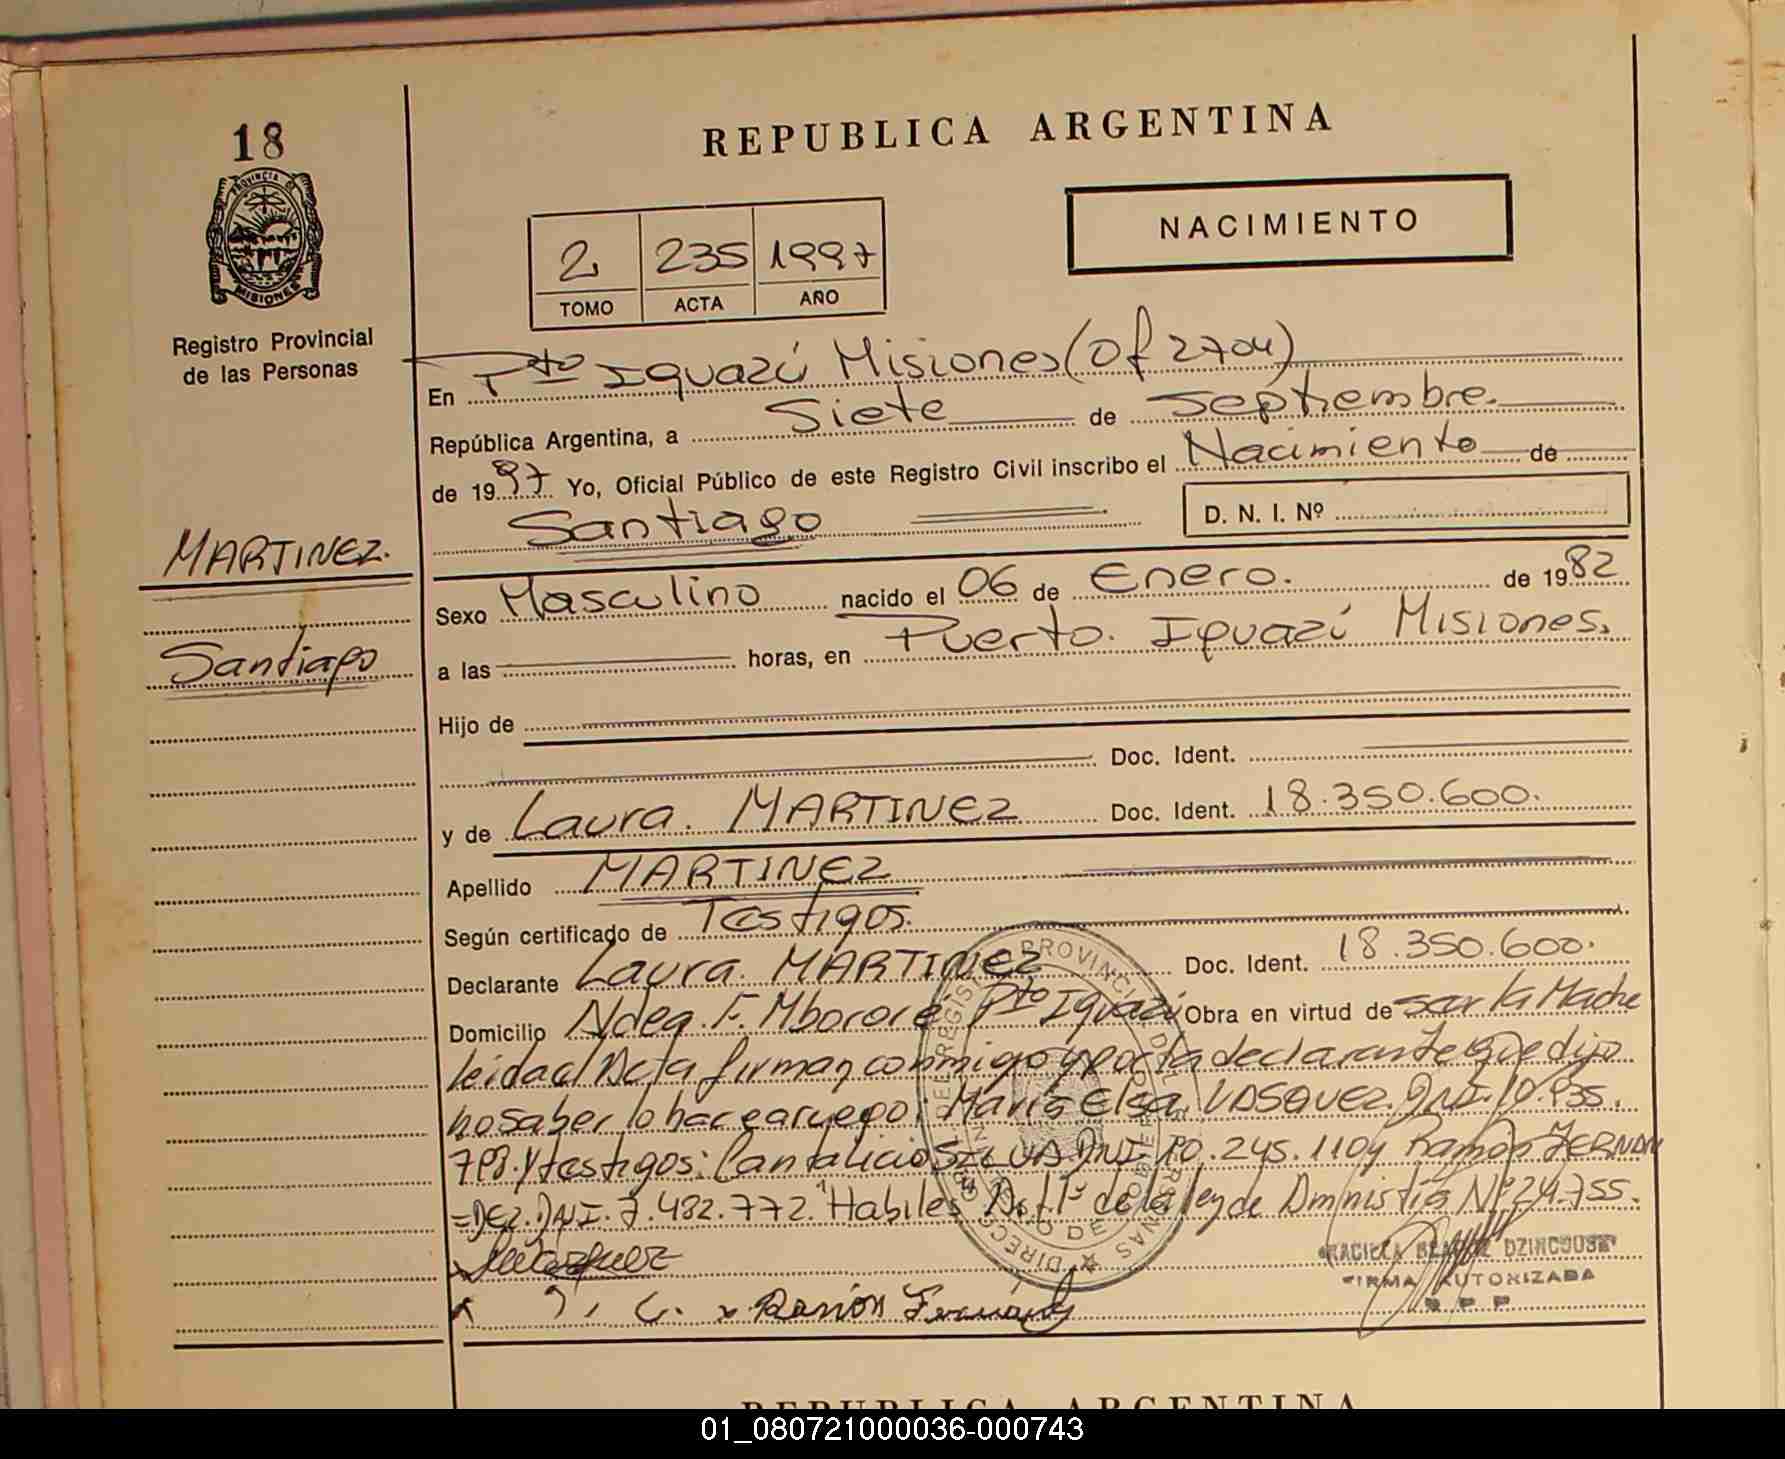 18
REPUBLICA ARGENTINA
PROVINCIA DE
MISIONES
NACIMIENTO
2 235 1997
TOMO ACTA AÑO
Registro Provincial
de las Personas
En Pto Iguazú Misiones (Of 2704)
República Argentina, a Siete de Septiembre.
de 1997 Yo, Oficial Público de este Registro Civil inscribo el Nacimiento de
Santiago D. N. I. Nº
MARTINEZ.
Santiago
Sexo Masculino nacido el 06 de Enero. de 1982
a las horas, en Puerto. Iguazú Misiones.
Hijo de
Doc. Ident.
y de Laura. MARTINEZ Doc. Ident. 18.350.600.
Apellido MARTINEZ
Según certificado de Testigos.
Declarante Laura. MARTINEZ Doc. Ident. 18.350.600.
Domicilio Aldea. F. Mbororé Pto Iguazú Obra en virtud de ser la Madre
leida el Acta firman conmigo y por la declarante que dijo
no saber lo hace a ruego: María Elsa VASQUEZ. DNI. 10.935.
798. y testigos: Cantalicio SILVA DNI 245.110 y Ramón FERNAN
=DEZ. DNI. 7.482.772. Habiles Art 1º de la ley de Amnistía Nº 24.755.
Ramón Fernández
DZINCOUSK
FIRMA AUTORIZADA
R P P
REPUBLICA ARGENTINA
01_080721000036-000743